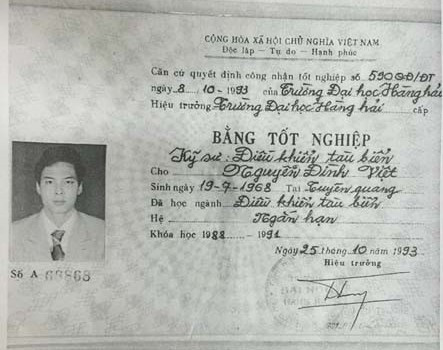 CỘNG HÒA XÃ HỘI CHỦ NGHĨA VIỆT NAM
Độc lập — Tự do — Hạnh phúc
Căn cứ quyết định công nhận tốt nghiệp số 590QĐ/ĐT
ngày 8 / 10 - 1993 của Trường Đại học Hàng hải
Hiệu trưởng Trường Đại học Hàng hải cấp
BẰNG TỐT NGHIỆP
Kỹ sư: Điều khiển tàu biển
Cho Nguyễn Đình Việt
Sinh ngày 19-9-1968 Tại Tuyên quang
Đã học ngành Điều khiển tàu biển
Hệ Ngắn hạn
Khóa học 1988 - 1991
Ngày 25 tháng 10 năm 1993
Hiệu trưởng
Số A 68868